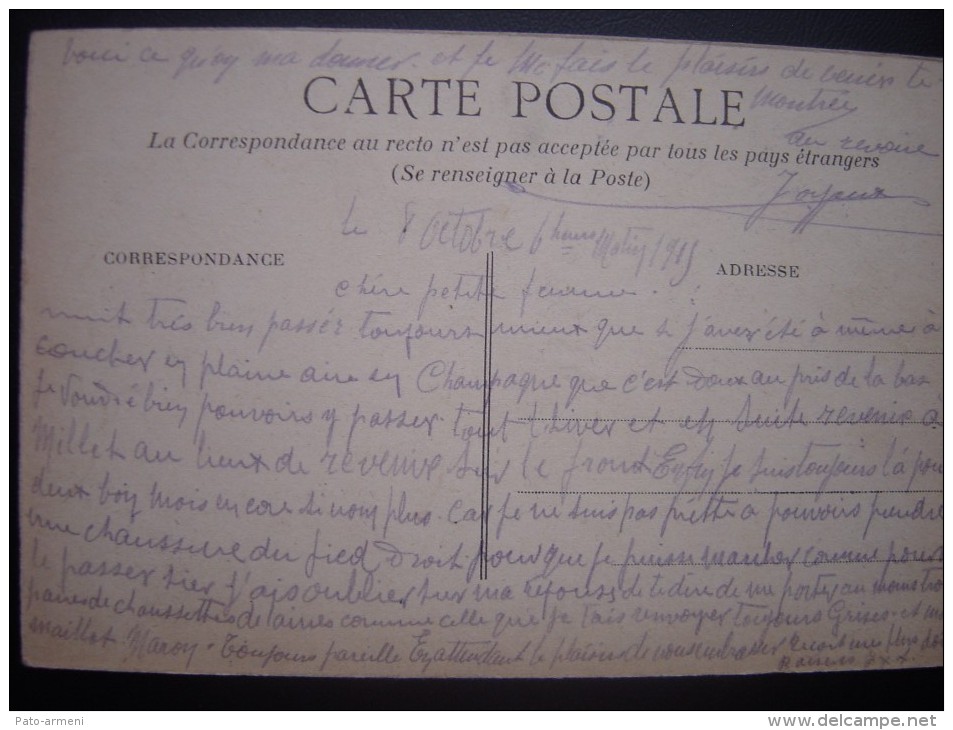 voici ce qu'on ma donner et je me fais le plaisirs de venir te
montrer
au revoire
Joyeux
CARTE POSTALE
La Correspondance au recto n'est pas acceptée par tous les pays étrangers
(Se renseigner à la Poste)
le 8 Octobre 6 heures Matin 1915
CORRESPONDANCE
ADRESSE
chére petite femme
nuit trés bien passée toujours mieux que si j'avers été à même à
coucher en plaine aire en Champagne que c'est doux au prés de la bas
je voudré bien pouvoirs y passer tout l'hiver et en suite revenir à
Millet au lieux de revenire sur le front Enfin je suis toujours là pour
deux bon mois encore si nom plus. Car je ne suis pas prêtt a pouvoirs prendre
une chaussure du pied droit pour que je puisse marcher comme pour
le passer hier j'ai oublier sur ma réponse de te dire de me porter au moins trois
paires de chaussettes de laines comme celle que je fais renvoyer toujours Grises et un
maillot Maron Toujours pareille En attendant le plaisir de vous embrasser encore une plus
Baisers xxx
Pato-armeni
www.delcampe.net